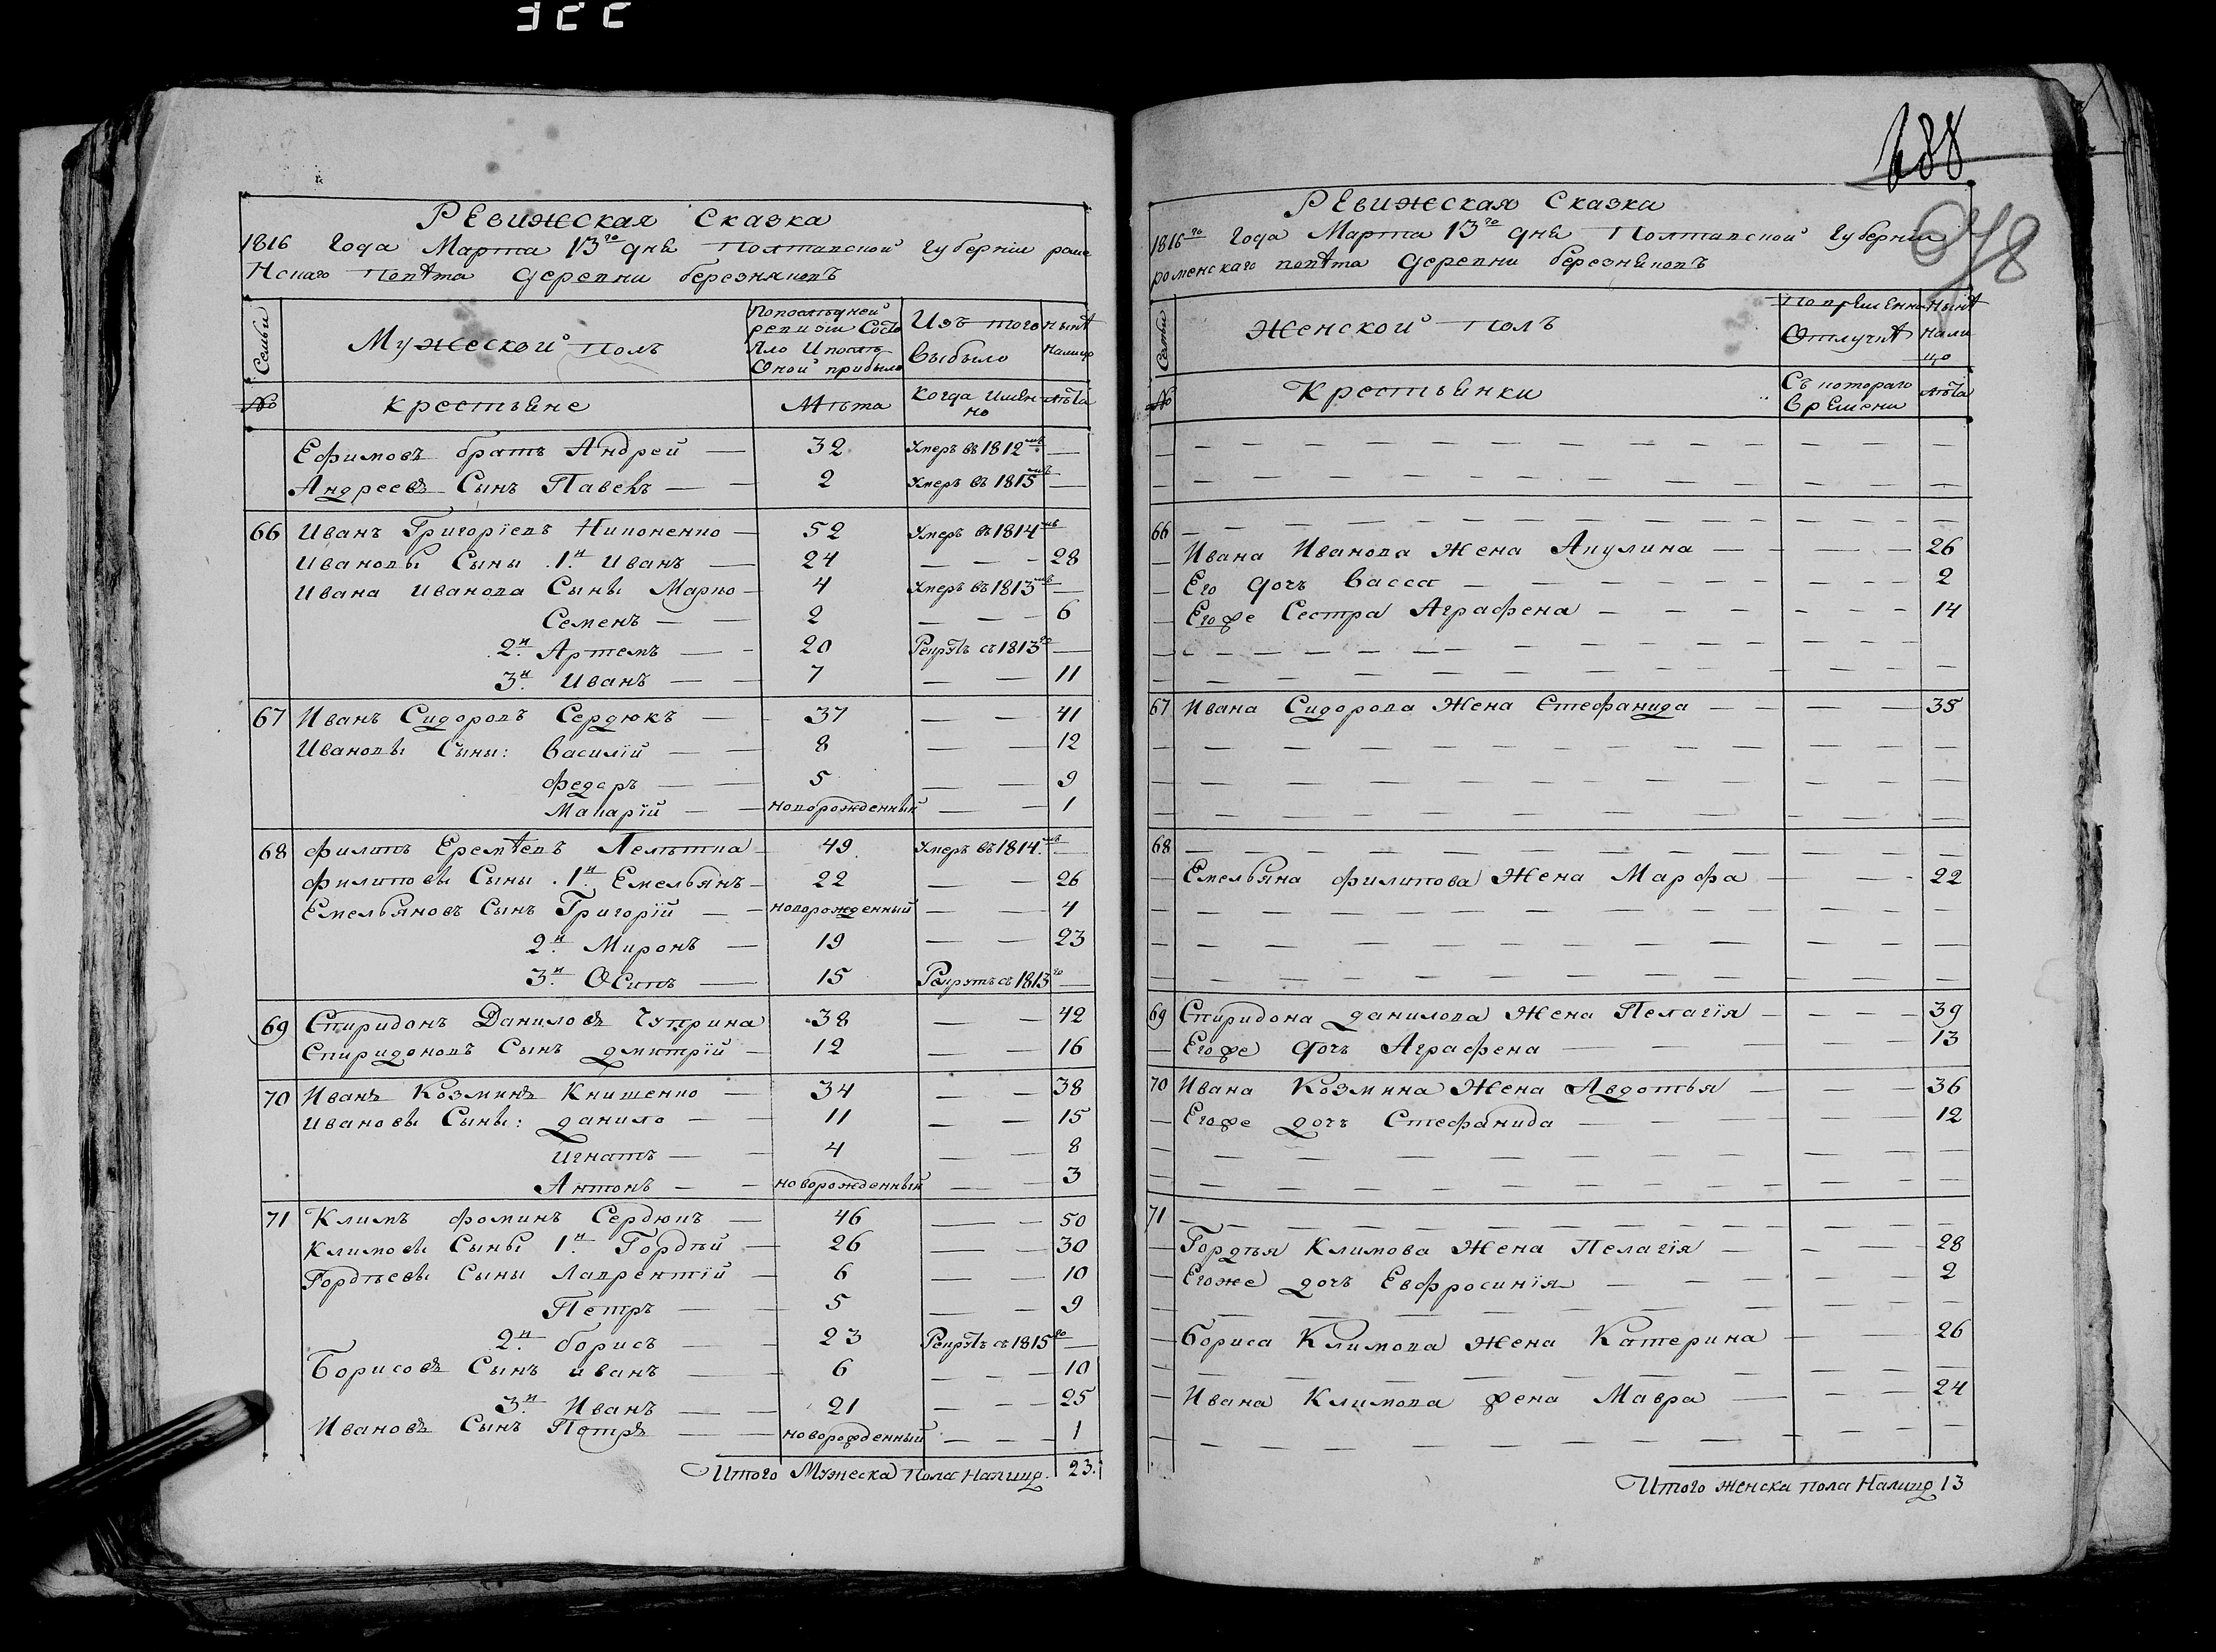 Ревижская Сказка
1816 Года Марта 13го дня Полтавской Губерніи роме
Нскаго Повѣта деревни березняковъ
Семьи
Мужеской Полъ
Попослѣдней
ревизіи Состо
яло Ипослѣ
Оной прибыло
Изъ того
Выбыло
нынѣ
налицо
№
крестьяне
Лѣта
Когда Имен
но
лѣта
Ефимовъ братъ Андрей — 32 Умеръ въ 1812мъ —
Андреевъ Сынъ Павелъ — — 2 Умеръ въ 1815мъ —
66 Иванъ Григоріевъ Никоненко — 52 Умеръ въ 1814мъ
Ивановы Сыны 1й Иванъ — 24 — — — 28
Ивана Иванова Сыны Марко — 4 Умеръ въ 1813мъ —
Семенъ — — 2 — — — 6
2й Артемъ — — 20 Рекрутъ съ 1813го —
3й Иванъ — — 7 — — 11
67 Иванъ Сидоровъ Сердюкъ — — 37 — — 41
Ивановы Сыны: Василій — — 8 — — 12
Федоръ — — 5 — — 9
Макарій — — новорожденный — — 1
68 Филипъ Еремѣевъ — 49 Умеръ въ 1814мъ —
Филиповы Сыны 1й Емельянъ — 22 — — 26
Емельяновъ Сынъ Григорій — — новорожденный — — 4
2й Миронъ — 19 — — 23
3й Осипъ — 15 Рекрутъ съ 1813го —
69 Спиридонъ Даниловъ Чуприна 38 — — 42
Спиридоновъ Сынъ Дмитрій — 12 — — 16
70 Иванъ Козминъ Книшенко — 34 — — 38
Ивановы Сыны: Данило — — 11 — — 15
Игнатъ — — 4 — — 8
Антонъ — — новорожденный — — 3
71 Климъ Фоминъ Сердюкъ — 46 — — 50
Климовы Сыны 1й Гордѣй — 26 — — 30
Гордѣевы Сыны Лаврентій — 6 — — 10
Петръ — — 5 — — 9
2й борисъ — — 23 Рекрутъ съ 1815го —
Борисовъ Сынъ иванъ — — 6 — — — 10
3й Иванъ — — 21 — — — 25
Ивановъ Сынъ Петръ — — новорожденный — — — 1
Итого Мужеска Пола Налицо. 23.
688
Ревижеская Сказка
1816го Года Марта 13го дня Полтавской Губерніи
роменскаго повѣта деревни березняковъ
Семьи
Женской Полъ
Вовремянной
Отлучкѣ
Нынѣ
нали
цо
№
Крестьянки
Съ котораго
времени
лѣта
66 —
Ивана Иванова Жена Акулина — — — — 26
Его дочъ Васса — — — 2
Егоже Сестра Аграфена — — — 14
67 Ивана Сидорова Жена Стефанида — — — — 35
68 —
Емельяна Филипова Жена Марфа — — — 22
69 Спиридона Данилова Жена Пелагія — — — — 39
Егоже дочъ Аграфена — — — 13
70 Ивана Козмина Жена Авдотья — — — 36
Егоже дочъ Стефанида — — — 12
71 —
Гордѣя Климова Жена Пелагія — — — 28
Егоже дочъ Евфросинія — — — 2
Бориса Климова Жена Катерина — — 26
Ивана Климова жена Мавра — — — 24
Итого женска пола Налицо 13